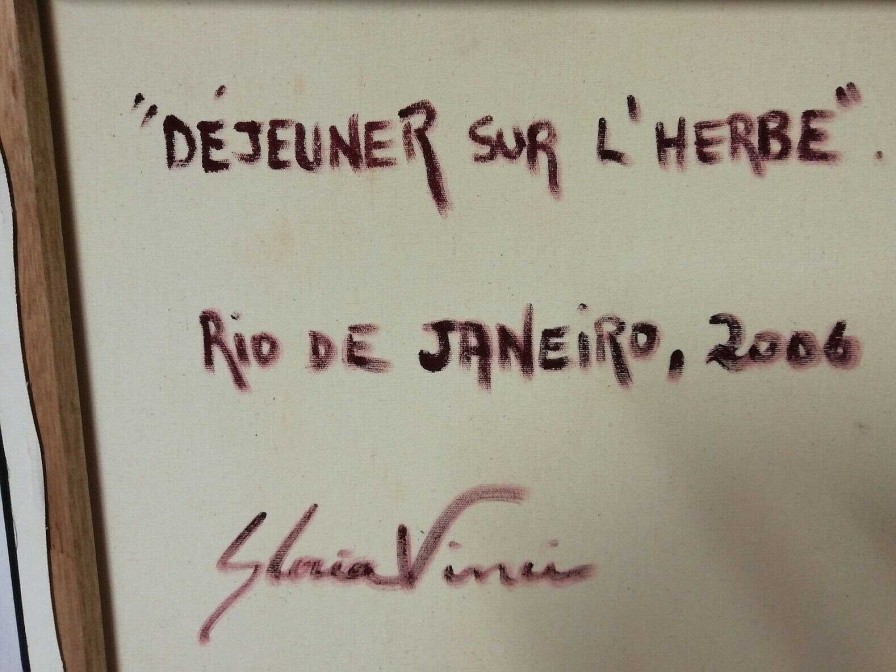 "DÉJEUNER SUR L'HERBE".
RiO DE JANEiRO, 2006
Gloria Vinci